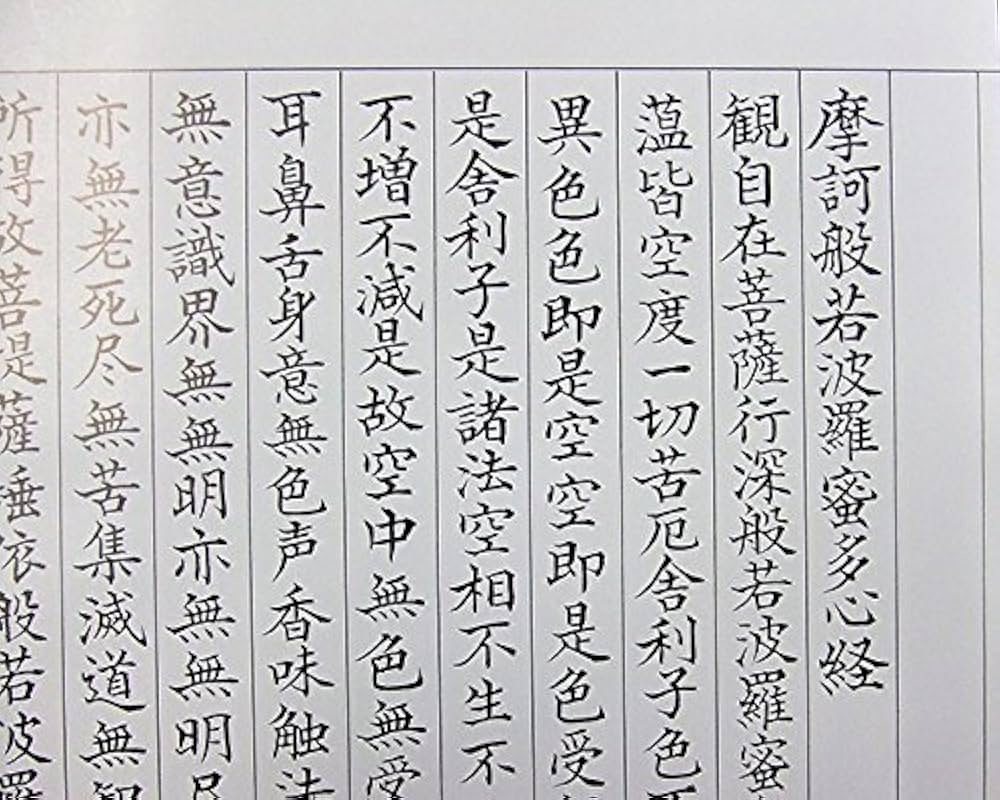 摩訶般若波羅蜜多心経
観自在菩薩行深般若波羅蜜
薀皆空度一切苦厄舎利子色
異色色即是空空即是色受
是舎利子是諸法空相不生不
不増不減是故空中無色無受
耳鼻舌身意無色声香味触法
無意識界無無明亦無無明尽
亦無老死尽無苦集滅道無智
所得故菩提薩埵依般若波羅